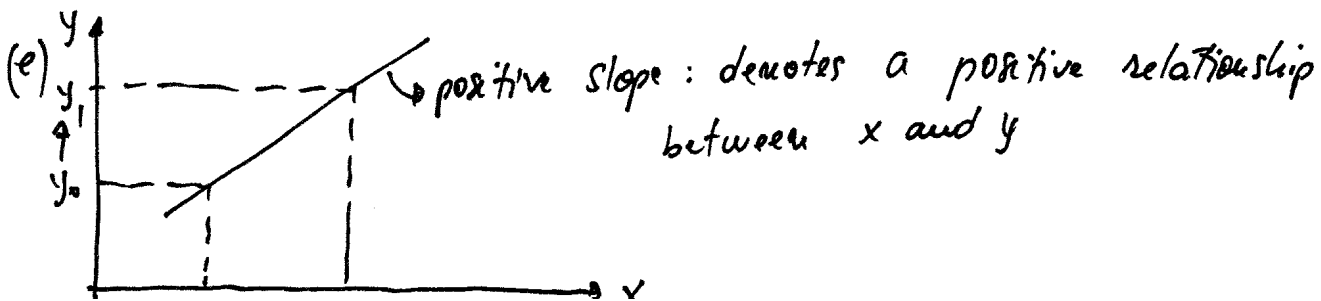 y
(e)
positive slope : denotes a positive relationship
between x and y
y₁
y₀
x